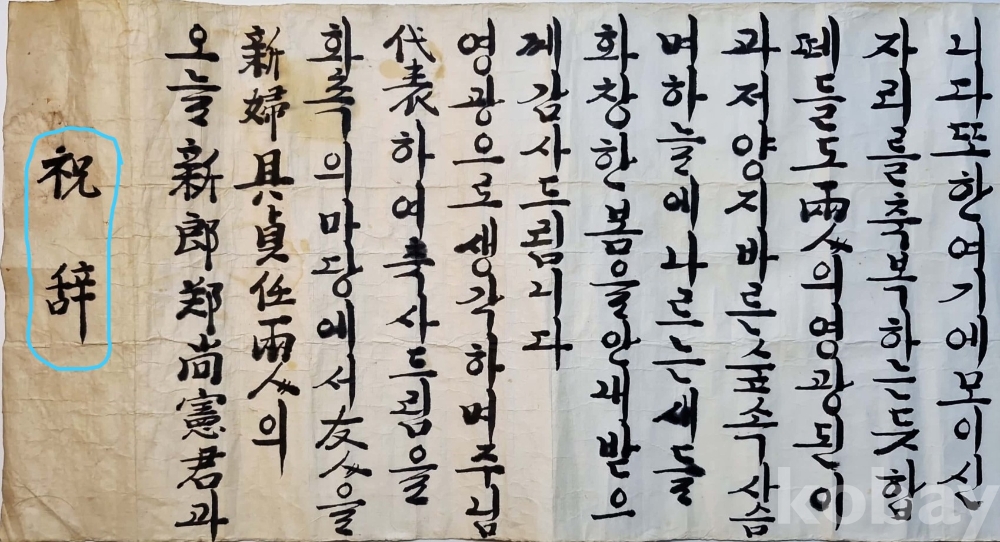 祝辞
오늘新郎郑尚憲君과
新婦具貞任兩人의
화촉의마당에서友人을
代表하여축사드림을
영광으로생각하며주님
께감사드림니다
화창한봄을 받으
며하늘에나르는새들
과저양지바른숲속사슴
떼들도兩人의영광된이
자리를축복하는듯함
니다또한여기에모이신
kobay